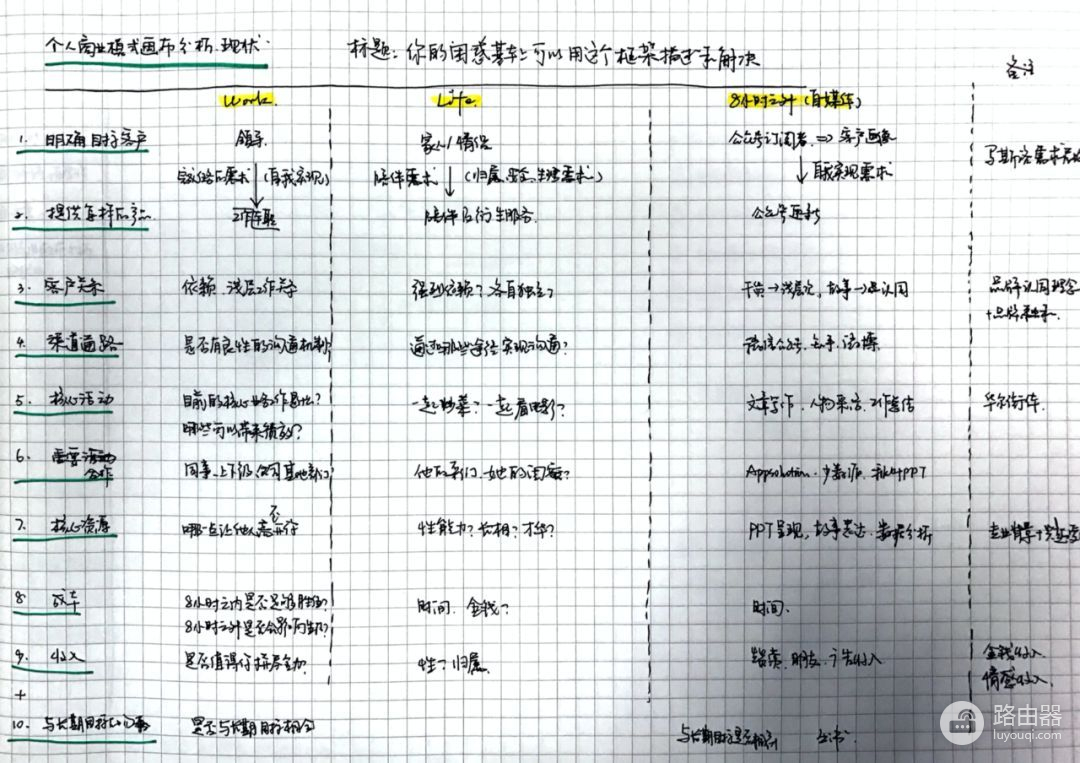 个人商业模式画布分析.现状.
标题:你的困惑基本上可以用这个框架描述和解决
备注
Work. Life. 8小时之外(自媒体)
1. 明确目标客户 领导 家人/情侣 公众号订阅者 => 客户画像
需求 (自我实现) 陪伴需求 (归属、安全、生理需求) 自我实现需求 马斯洛需求
2. 提供怎样的产品 工作 陪伴及衍生服务. 公众号更新
3. 客户关系 依赖. 浅层工作关系 强烈依赖?各自独立? 干货→浅层次, 故事→认同 品牌认同理念
+品牌
4. 渠道通路 是否有良性的沟通机制? 通过哪些途径实现沟通? 微信公众号、知乎、微博
5. 核心活动 目前的核心工作是什么? 一起做菜?一起看电影? 文章写作、人物采访、工作总结
哪些可以带来绩效?
6. 需要
合作 同事、上下级、公司其他部门? 他的哥们、她的闺蜜? Appsolution、少数派、秋叶PPT
7. 核心资源 哪一点让他人离不开你 性能力?长相?才华? PPT呈现、故事表达、数据分析 专业背景+
8 成本 8小时之内是否足够胜任? 时间、金钱? 时间、
8小时之外是否会影响生活?
9. 收入 是否值得你拼尽全力? 性?归属 朋友、广告收入 金钱收入
情感收入.
+
10. 与长期目标的 是否与长期目标相符 与长期目标是否相符 出书.
路由器
luyouqi.com